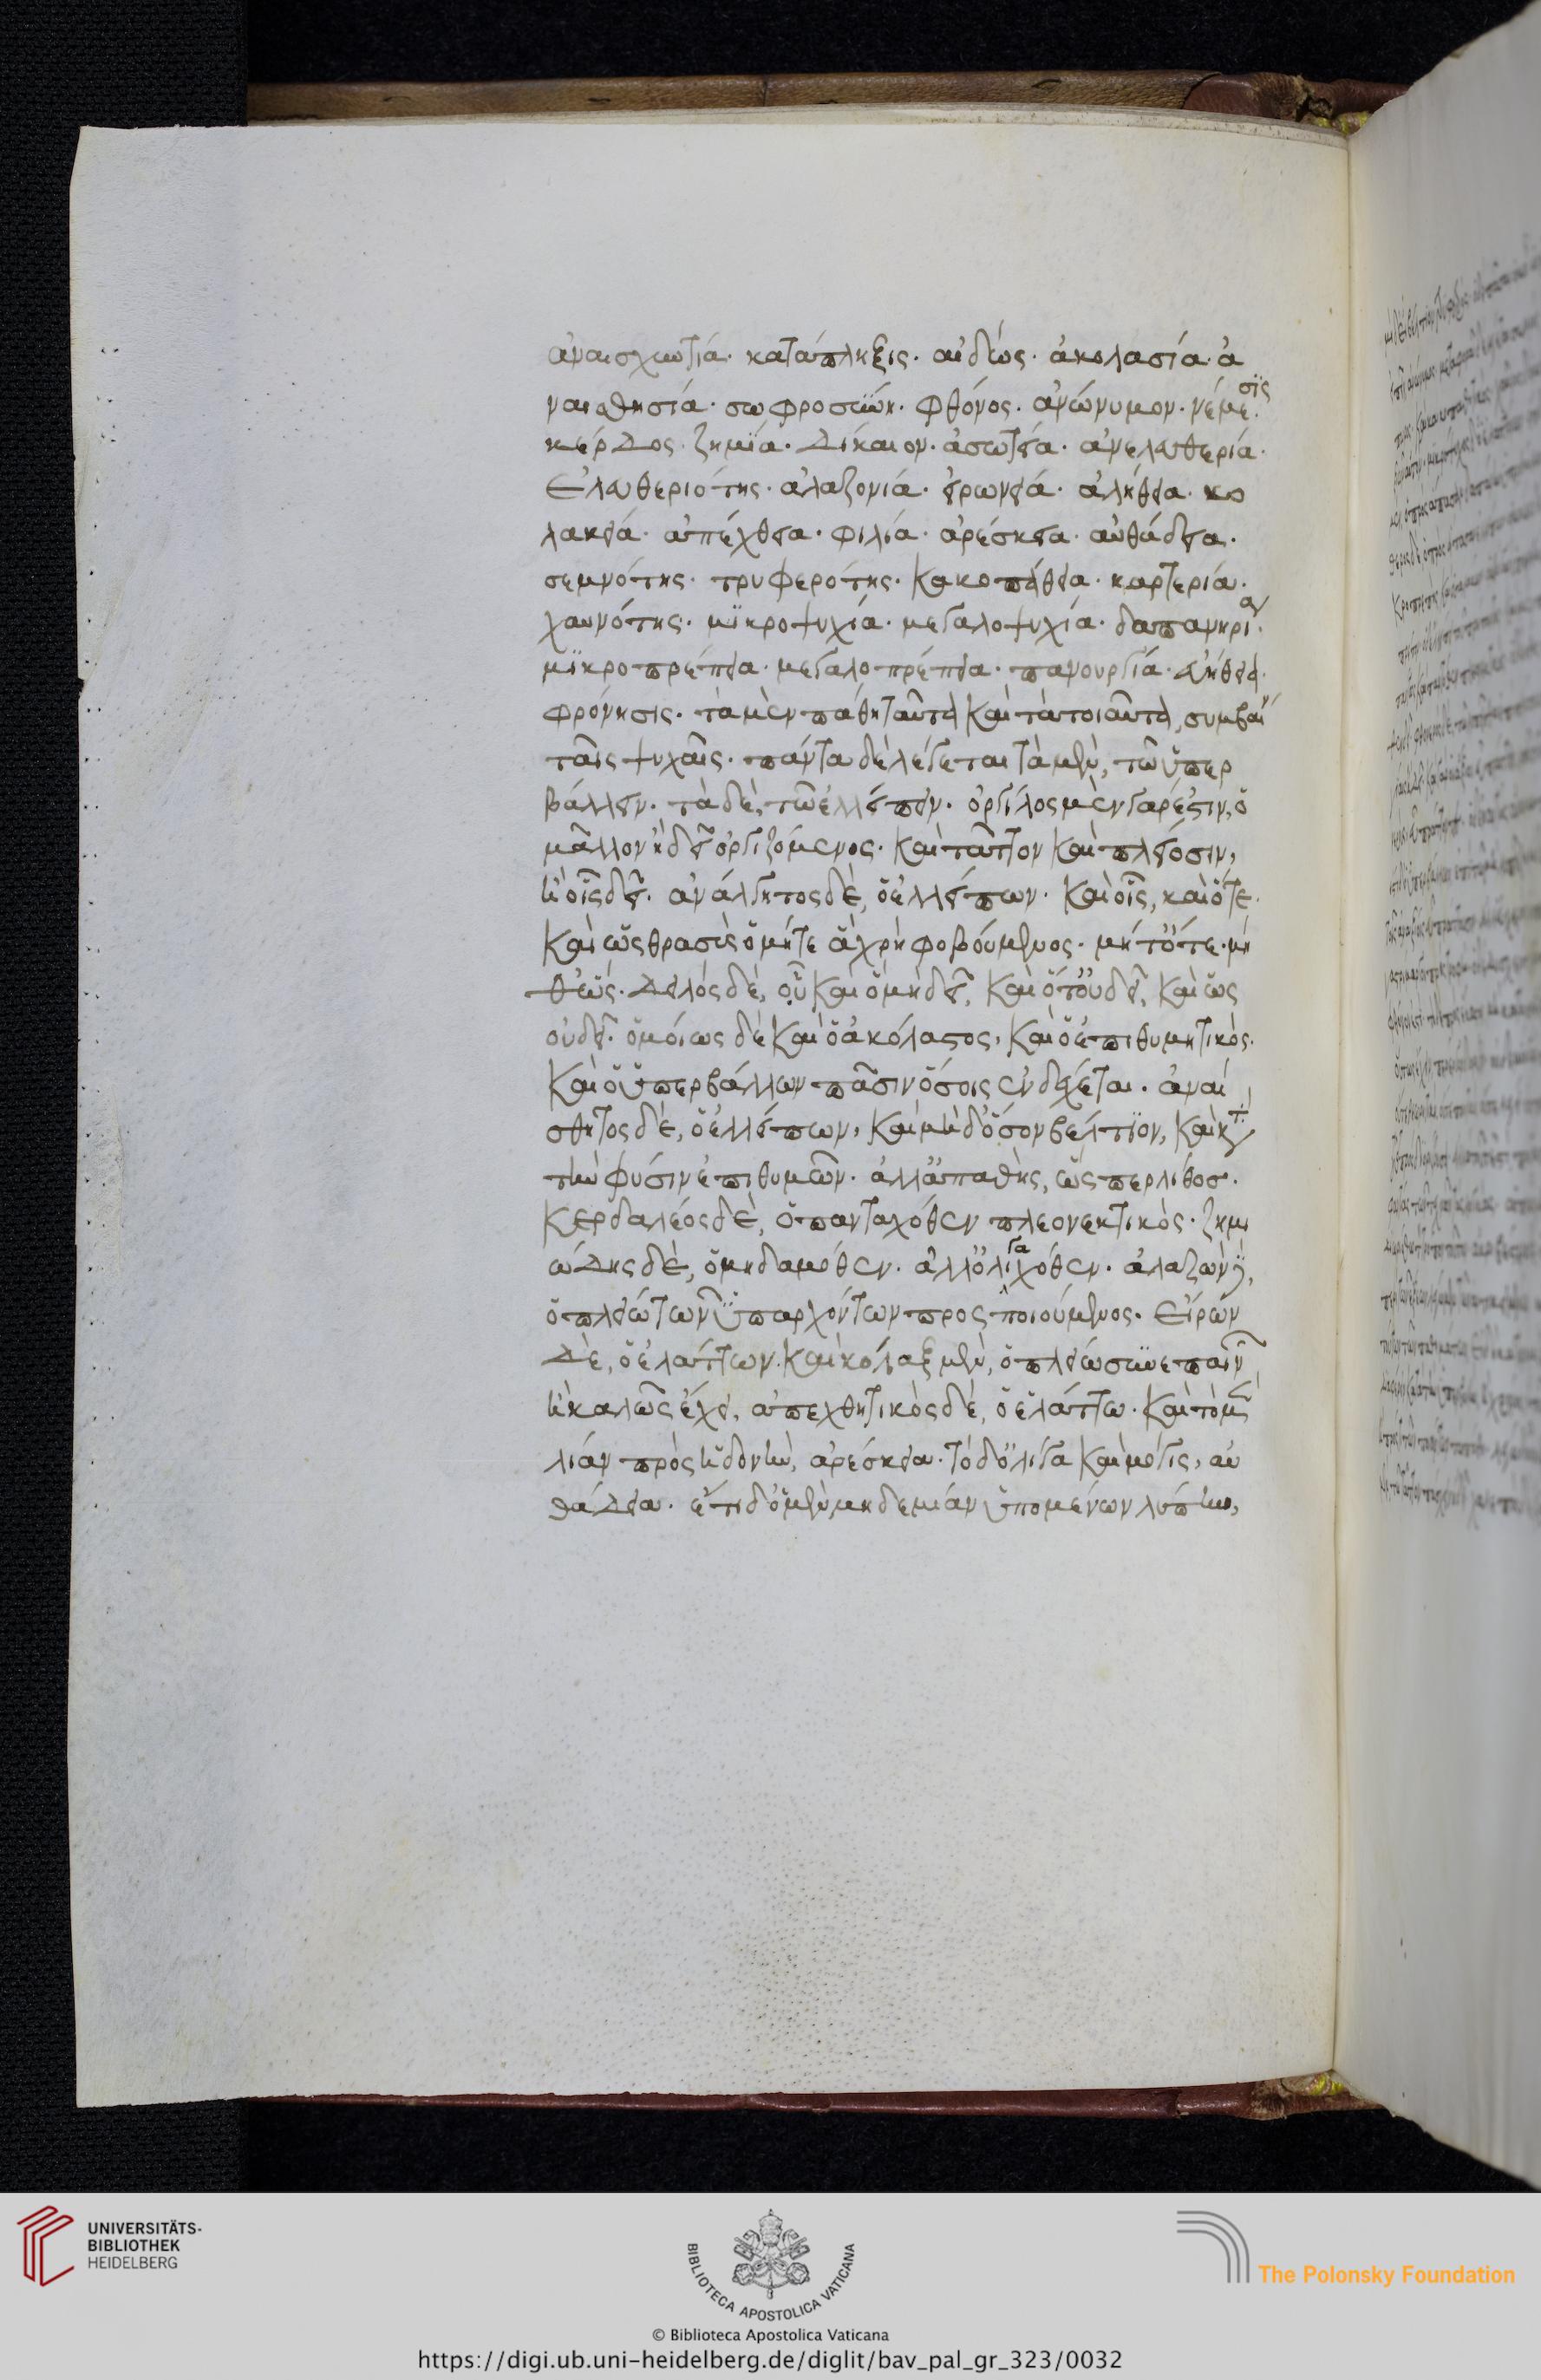 ἀναισχυντία· κατάπληξις· αἰδώς· ἀκολασία· ἀ
ναισθησία· σωφροσύνη· φθόνος· ἀνώνυμον· νέμεσϊς·
κέρδος· ζημϊα· δίκαιον· ἀσωτεία· ἀνελευθερία·
ἐλευθεριότης· ἀλαζονία· εἰρωνεία· ἀλήθεια· κο
λακεία· ἀπέχθεια· φιλία· ἀρέσκεια· αὐθάδεια·
σεμνότης· τρυφερότης· κακοπάθεια· καρτερία·
χαυνότης· μϊκροψυχία· μεγαλοψυχία· δαπανηρία·
μϊκροπρέπεια· μεγαλοπρέπεια· πανουργία· εὐήθεια·
φρόνησις· τὰ μὲν πάθη ταῦτα καὶ τὰ τοιαῦτα, συμβαίν
ταῖς ψυχαῖς· πάντα δὲ λέγεται τὰ μὲν, τῶ ὑπερ
βάλλειν· τὰ δὲ, τῶ ἐλλείπειν· ὀργίλος μὲν γάρ ἐστιν, ὁ
μᾶλλον ἢ δεῖ ὀργιζόμενος· καὶ θᾶττον καὶ πλείοσιν,
ἢ οἷς δεῖ· ἀνάλγητος δὲ, ὁ ἐλλείπων· καὶ οἷς, καὶ ὅτε·
καὶ ὡς θρασὺς ὁ μήτε ἃ χρὴ φοβούμενος· μήτ' ὅτε· μή
θ' ὡς· δειλὸς δὲ, ὁ καὶ ἃ μὴ δεῖ, καὶ ὅτ' οὐ δεῖ, καὶ ὡς
οὐ δεῖ· ὁμοίως δὲ καὶ ὁ ἀκόλαστος, καὶ ὁ ἐπιθυμητικὸς·
καὶ ὁ ὑπερβάλλων πᾶσιν ὅσοις ἐνδέχεται· ἀναί
σθητος δὲ, ὁ ἐλλείπων, καὶ μηδ' ὅσον βέλτϊον, καὶ κτ
τὴν φύσιν ἐπιθυμῶν· ἀλλ' ἀπαθὴς, ὥσπερ λίθοσ·
κερδαλέος δὲ, ὁ πανταχόθεν πλεονεκτικὸς· ζημι
ώδης δὲ, ὁ μηδαμόθεν· ἀλλ' ὀλιγαχόθεν· ἀλαζὼν δὲ,
ὁ πλείω τῶν ὑπαρχόντων προσποιούμενος· εἴρων
δὲ, ὁ ἐλάττων· καὶ κόλαξ μὲν, ὁ πλείω συνεπαινῶν
ἢ καλῶς ἔχει, ἀπεχθητικὸς δὲ, ὁ ἐλάττω· καὶ τὸ μὲν
λίαν πρὸς ἡδονὴν, ἀρέσκεια· τὸ δ' ὀλίγα καὶ μόγις, αὐ
θάδεια· ἔτι δ' ὁ μὲν μηδεμίαν ὑπομένων λύπην,
UNIVERSITÄTS-
BIBLIOTHEK
HEIDELBERG
BIBLIOTECA APOSTOLICA VATICANA
The Polonsky Foundation
© Biblioteca Apostolica Vaticana
https://digi.ub.uni-heidelberg.de/diglit/bav_pal_gr_323/0032